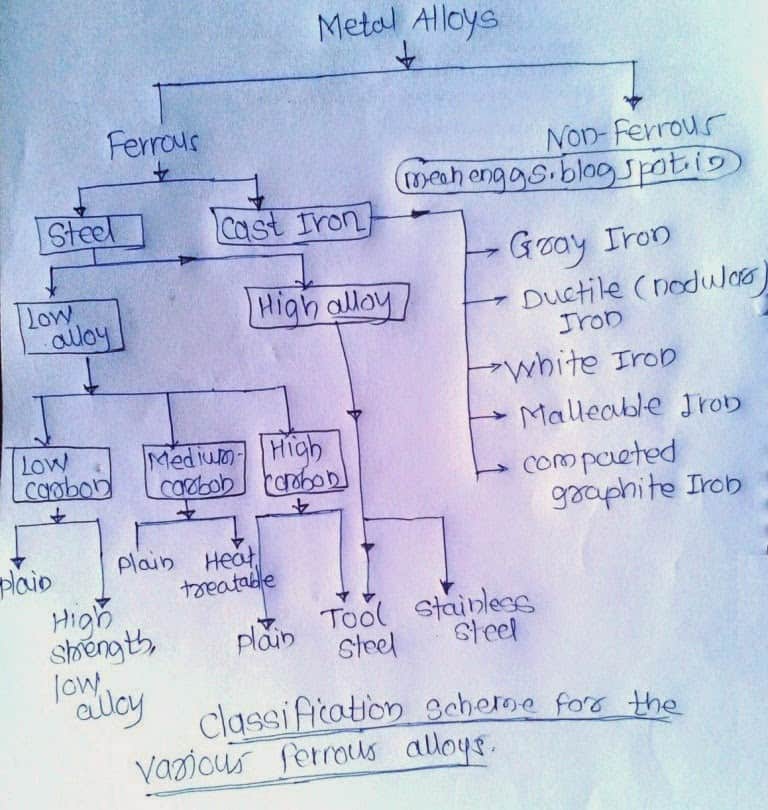 Metal Alloys
Ferrous
Non-Ferrous
mechenggs.blogspot.in
Steel
Cast Iron
Gray Iron
Ductile (nodular)
Iron
White Iron
Malleable Iron
compacted
graphite Iron
Low
alloy
High alloy
Low
carbon
Medium-
carbon
High
carbon
Plain
High
strength,
low
alloy
Plain
Heat
treatable
Plain
Tool
Steel
Stainless
Steel
Classification scheme for the
various ferrous alloys.